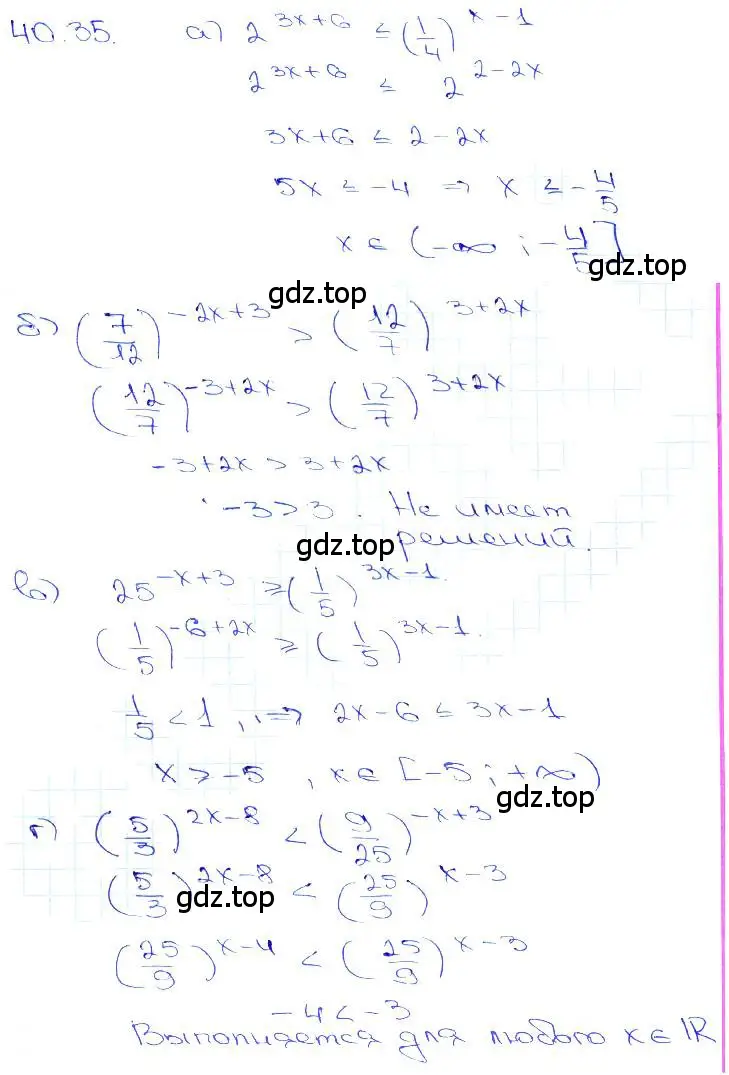 40.35. а) 2^{3x+6} ≤ (1/4)^{x-1}
2^{3x+6} ≤ 2^{2-2x}
3x+6 ≤ 2-2x
5x ≤ -4 ⇒ x ≤ -4/5
x ∈ (-∞ ; -4/5]
gdz.top
gdz.top
б) (7/12)^{-2x+3} > (12/7)^{3+2x}
(12/7)^{-3+2x} > (12/7)^{3+2x}
-3+2x > 3+2x
-3>3. Не имеет
решений.
gdz.top
в) 25^{-x+3} ≥ (1/5)^{3x-1}.
(1/5)^{-6+2x} ≥ (1/5)^{3x-1}.
1/5 < 1, ⇒ 2x-6 ≤ 3x-1
x ≥ -5, x ∈ [-5; +∞)
gdz.top
г) (5/3)^{2x-8} < (9/25)^{-x+3}
(5/3)^{2x-8} < (25/9)^{x-3}
gdz.top
(25/9)^{x-4} < (25/9)^{x-3}
-4 < -3
Выполняется для любого x ∈ ℝ